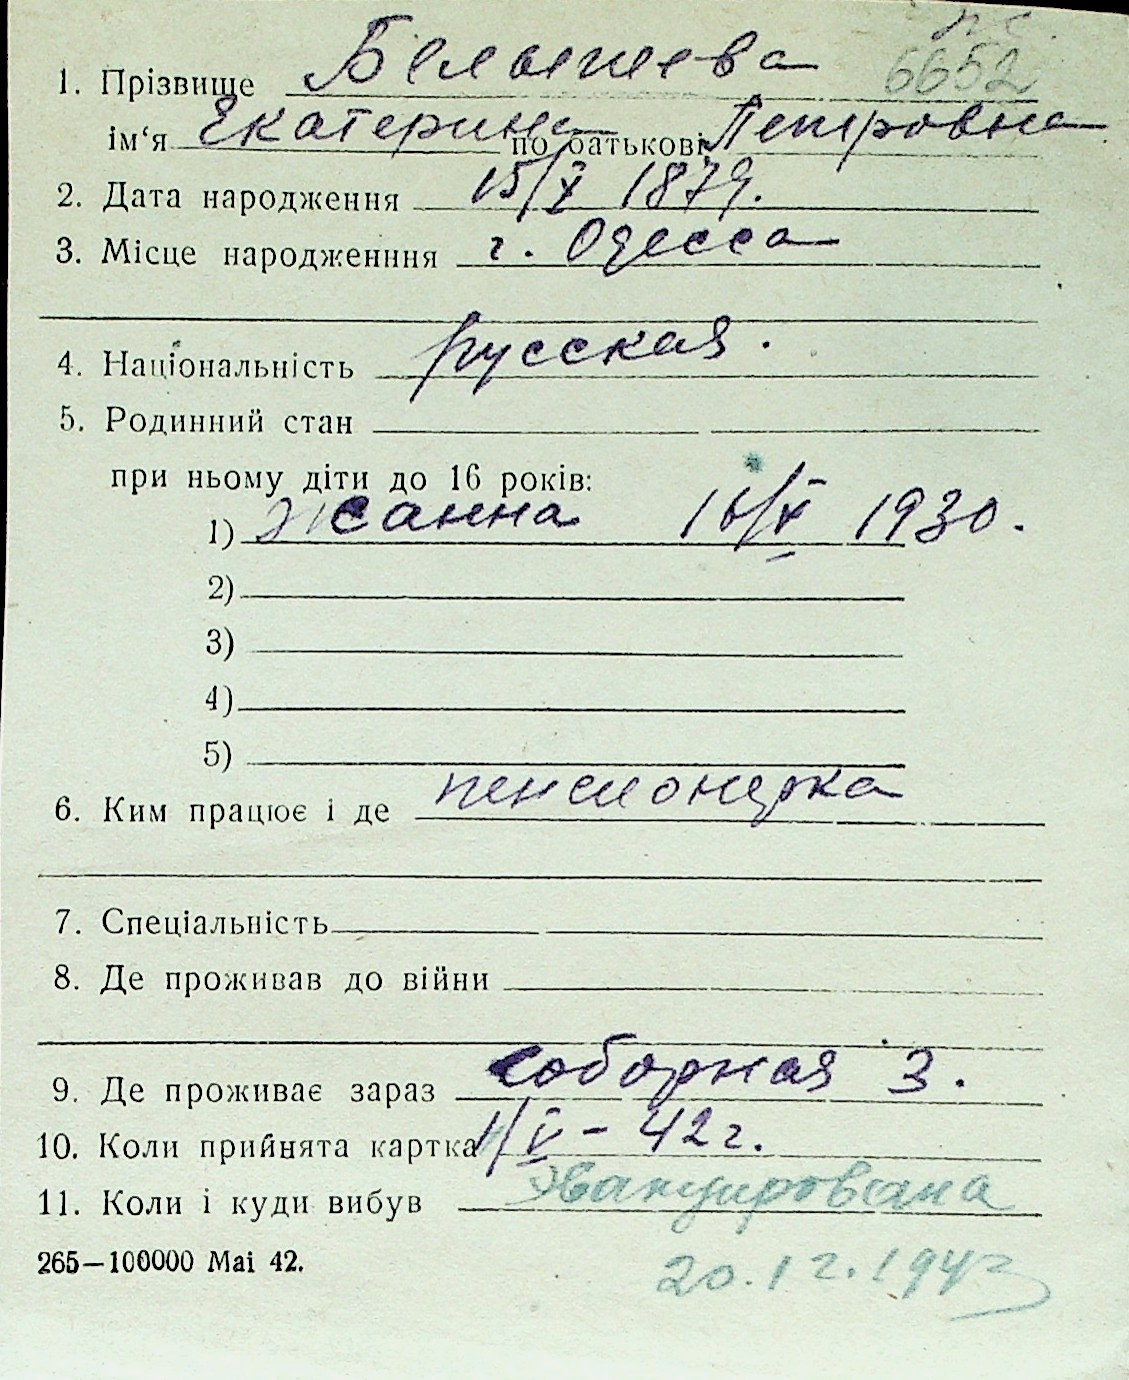 6652
1. Прізвище Белышева
ім‘я Екатерина по батькові Петровна
2. Дата народження 15/X 1879.
3. Місце народженння г. Одесса
4. Національність русская.
5. Родинний стан
при ньому діти до 16 років:
1) Жанна 16/X 1930.
2)
3)
4)
5)
6. Ким працює і де пенсионерка
7. Спеціальність
8. Де проживав до війни
9. Де проживає зараз Соборная 3.
10. Коли прийнята картка 1/V – 42 г.
11. Коли і куди вибув Эвакуирована
265—100000 Mai 42.